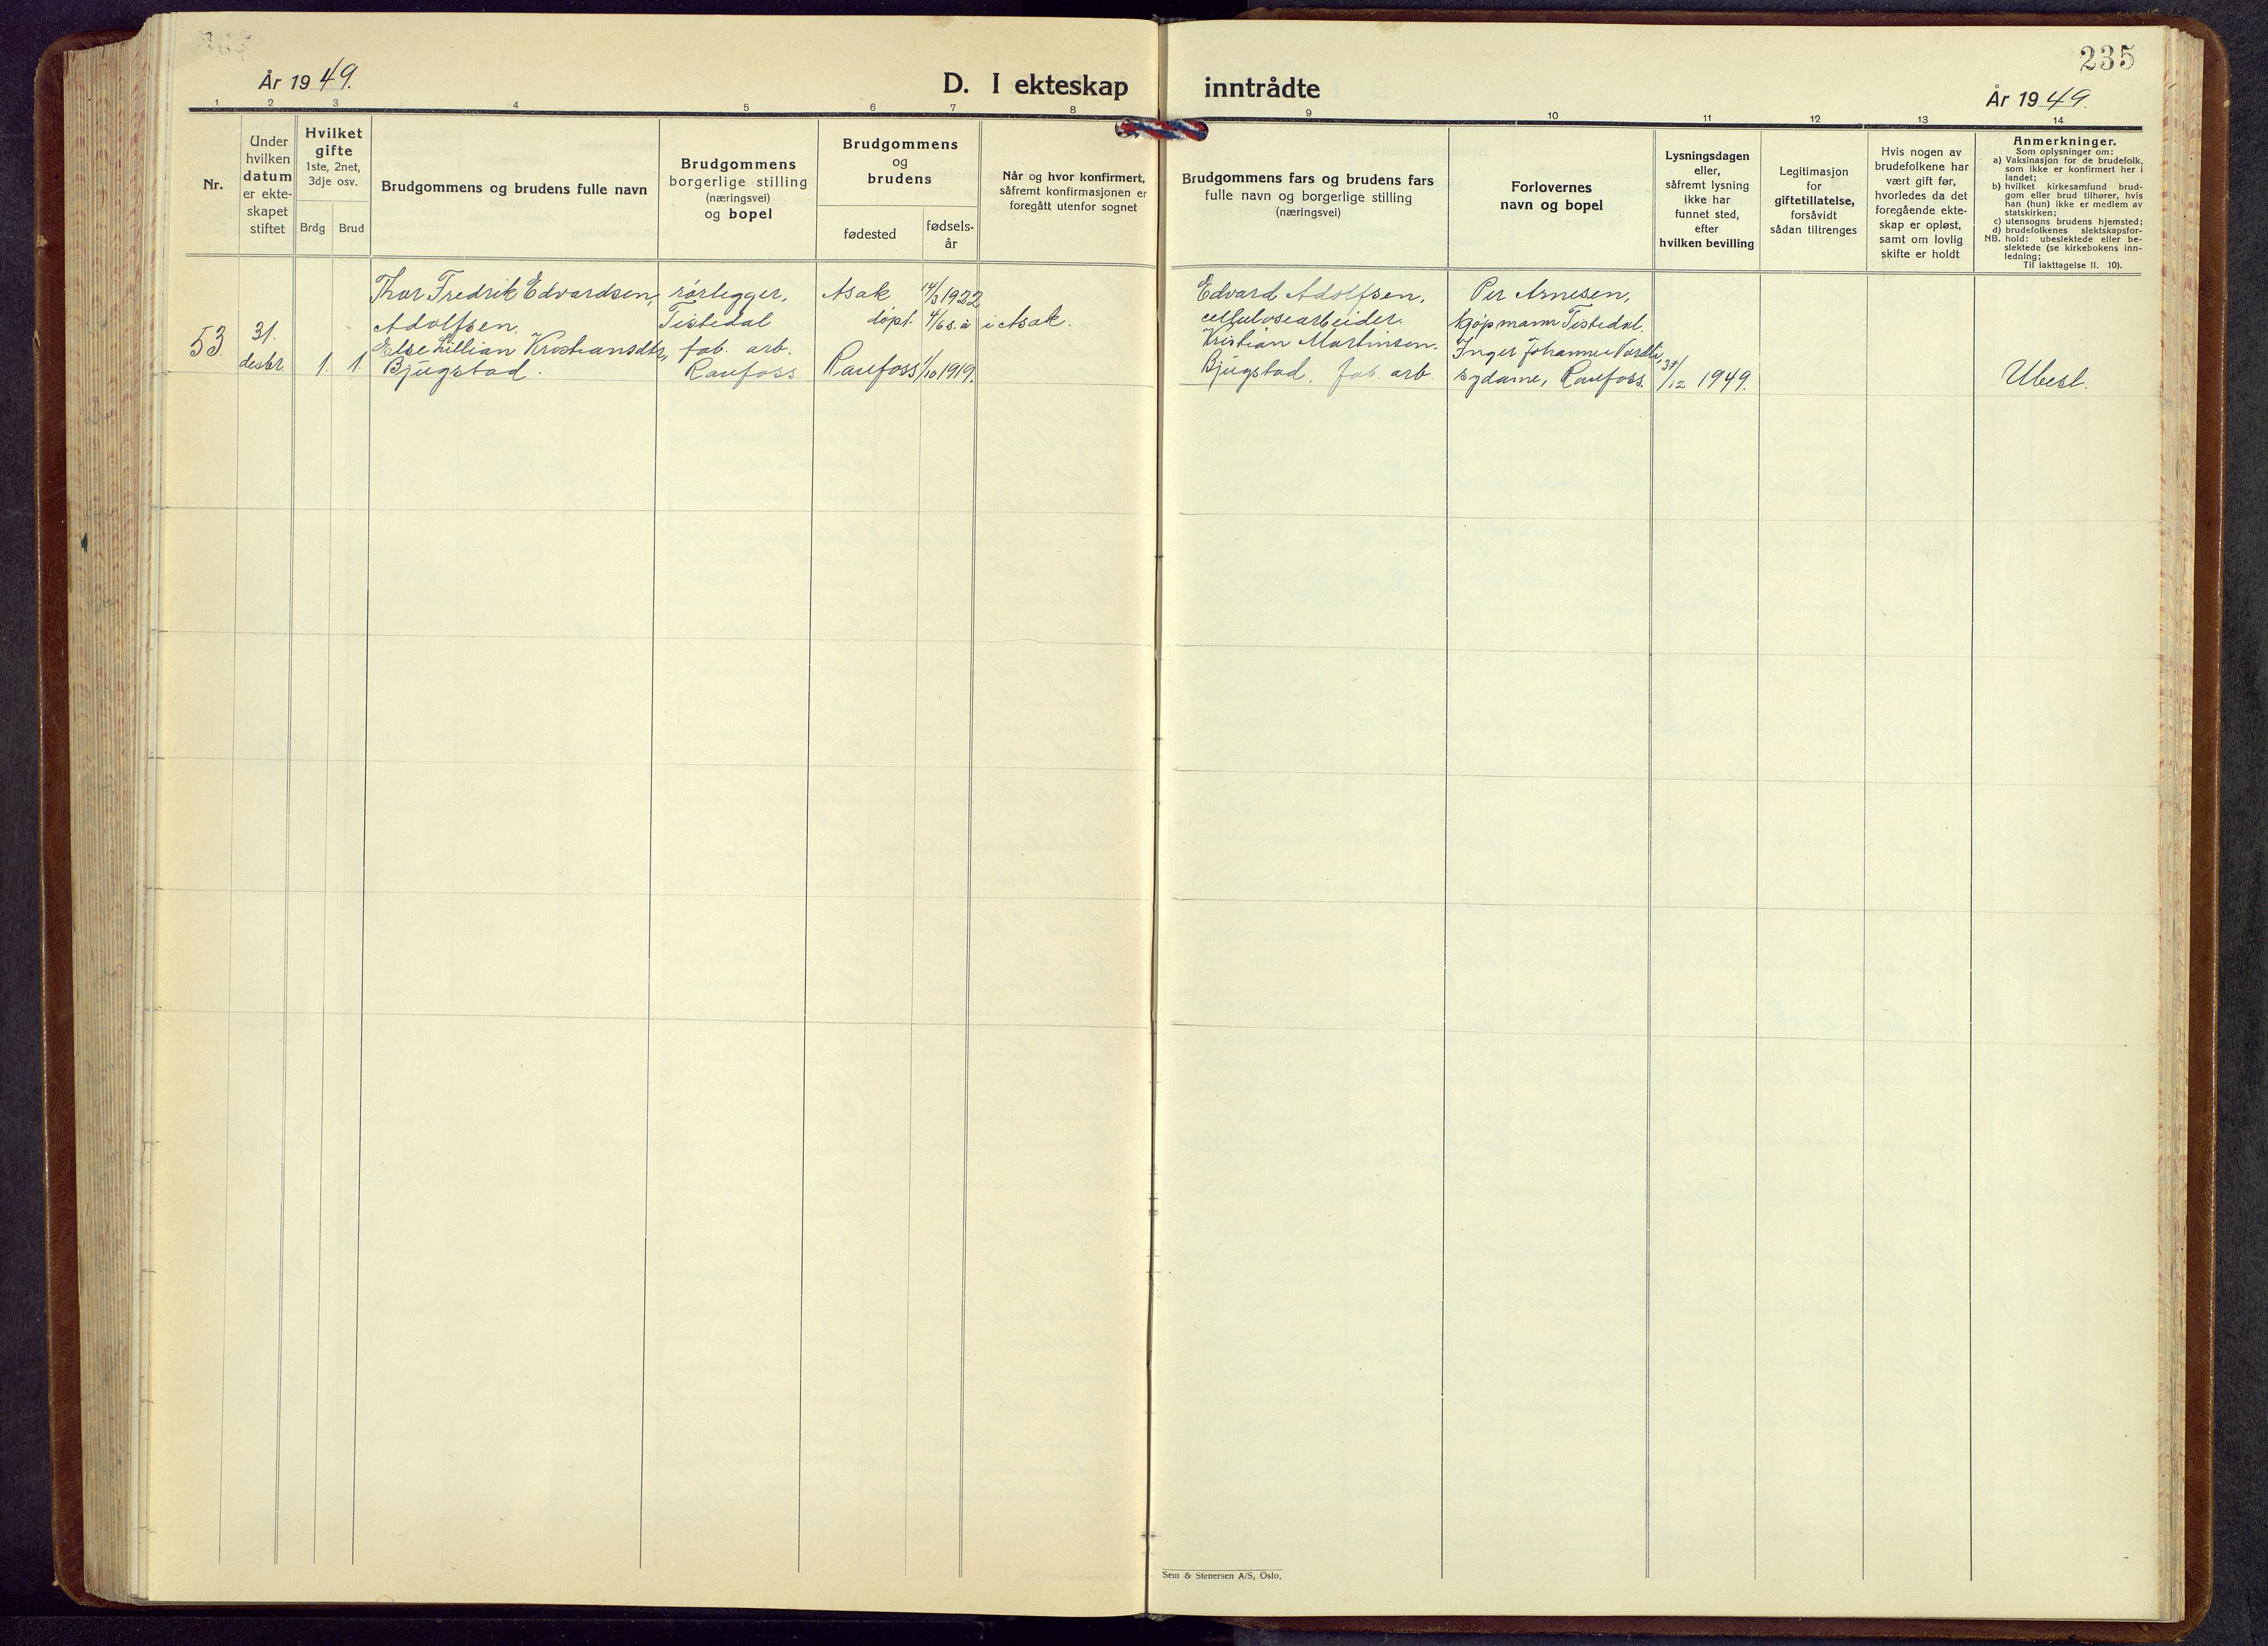 235
År 1949.
D. I ekteskap inntrådte
År 1949.
1 2 3 4 5 6 7 8 9 10 11 12 13 14
Nr.
Under
hvilken
datum
er ekte-
skapet
stiftet
Hvilket
gifte
1ste, 2net,
3dje osv.
Brdg Brud
Brudgommens og brudens fulle navn
Brudgommens
borgerlige stilling
(næringsvei)
og bopel
Brudgommens
og
brudens
fødested
fødsels-
år
Når og hvor konfirmert,
såfremt konfirmasjonen er
foregått utenfor sognet
Brudgommens fars og brudens fars
fulle navn og borgerlige stilling
(næringsvei)
Forlovernes
navn og bopel
Lysningsdagen
eller,
såfremt lysning
ikke har
funnet sted,
efter
hvilken bevilling
Legitimasjon
for
giftetillatelse,
forsåvidt
sådan tiltrenges
Hvis nogen av
brudefolkene har
vært gift før,
hvorledes da det
foregående ekte-
skap er opløst,
samt om lovlig
skifte er holdt
Anmerkninger.
Som oplysninger om:
a) Vaksinasjon for de brudefolk,
som ikke er konfirmert her i
landet;
b) hvilket kirkesamfund brud-
gom eller brud tilhører, hvis
han (hun) ikke er medlem av
statskirken;
c) utensogns brudens hjemsted;
d) brudefolkenes slektskapsfor-
NB. hold: ubeslektede eller be-
slektede (se kirkebokens inn-
ledning;
Til iakttagelse II. 10).
53
31.
desbr.
1. 1.
Thor Fredrik Edvardsen,
Adolfsen.
Else Lillian Kristiansdtr,
Bjugstad.
rørlegger,
Tistedal
fab. arb.
Raufoss.
Asak 14/3 1922
døpt 4/6 s.å i Asak.
Raufoss 1/10 1919.
Edvard Adolfsen,
cellulosearbeider.
Kristian Martinsen
Bjugstad, fab. arb.
Per Arnesen,
kjøpmann Tistedal.
Inger Johanne Nordli,
sydame, Raufoss.
/12 1949.
Ubesl.
Sem & Stenersen A/S, Oslo.